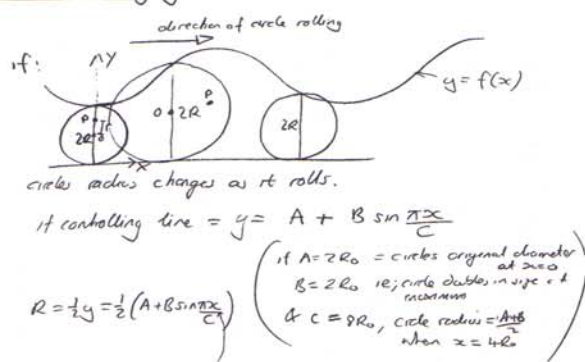 direction of circle rolling
if:
Y
y = f(x)
P
r
2R
O
2R
P
2R
x
circles radius changes as it rolls.
if controlling line = y = A + B sin πx/C
R = ½y = ½(A+B sin πx/C)
(if A = 2R₀ = circles original diameter at x=0
B = 2R₀ ie; circle doubles in size at maximum
& C = 8R₀, circle radius = A+B/2
when x = 4R₀)